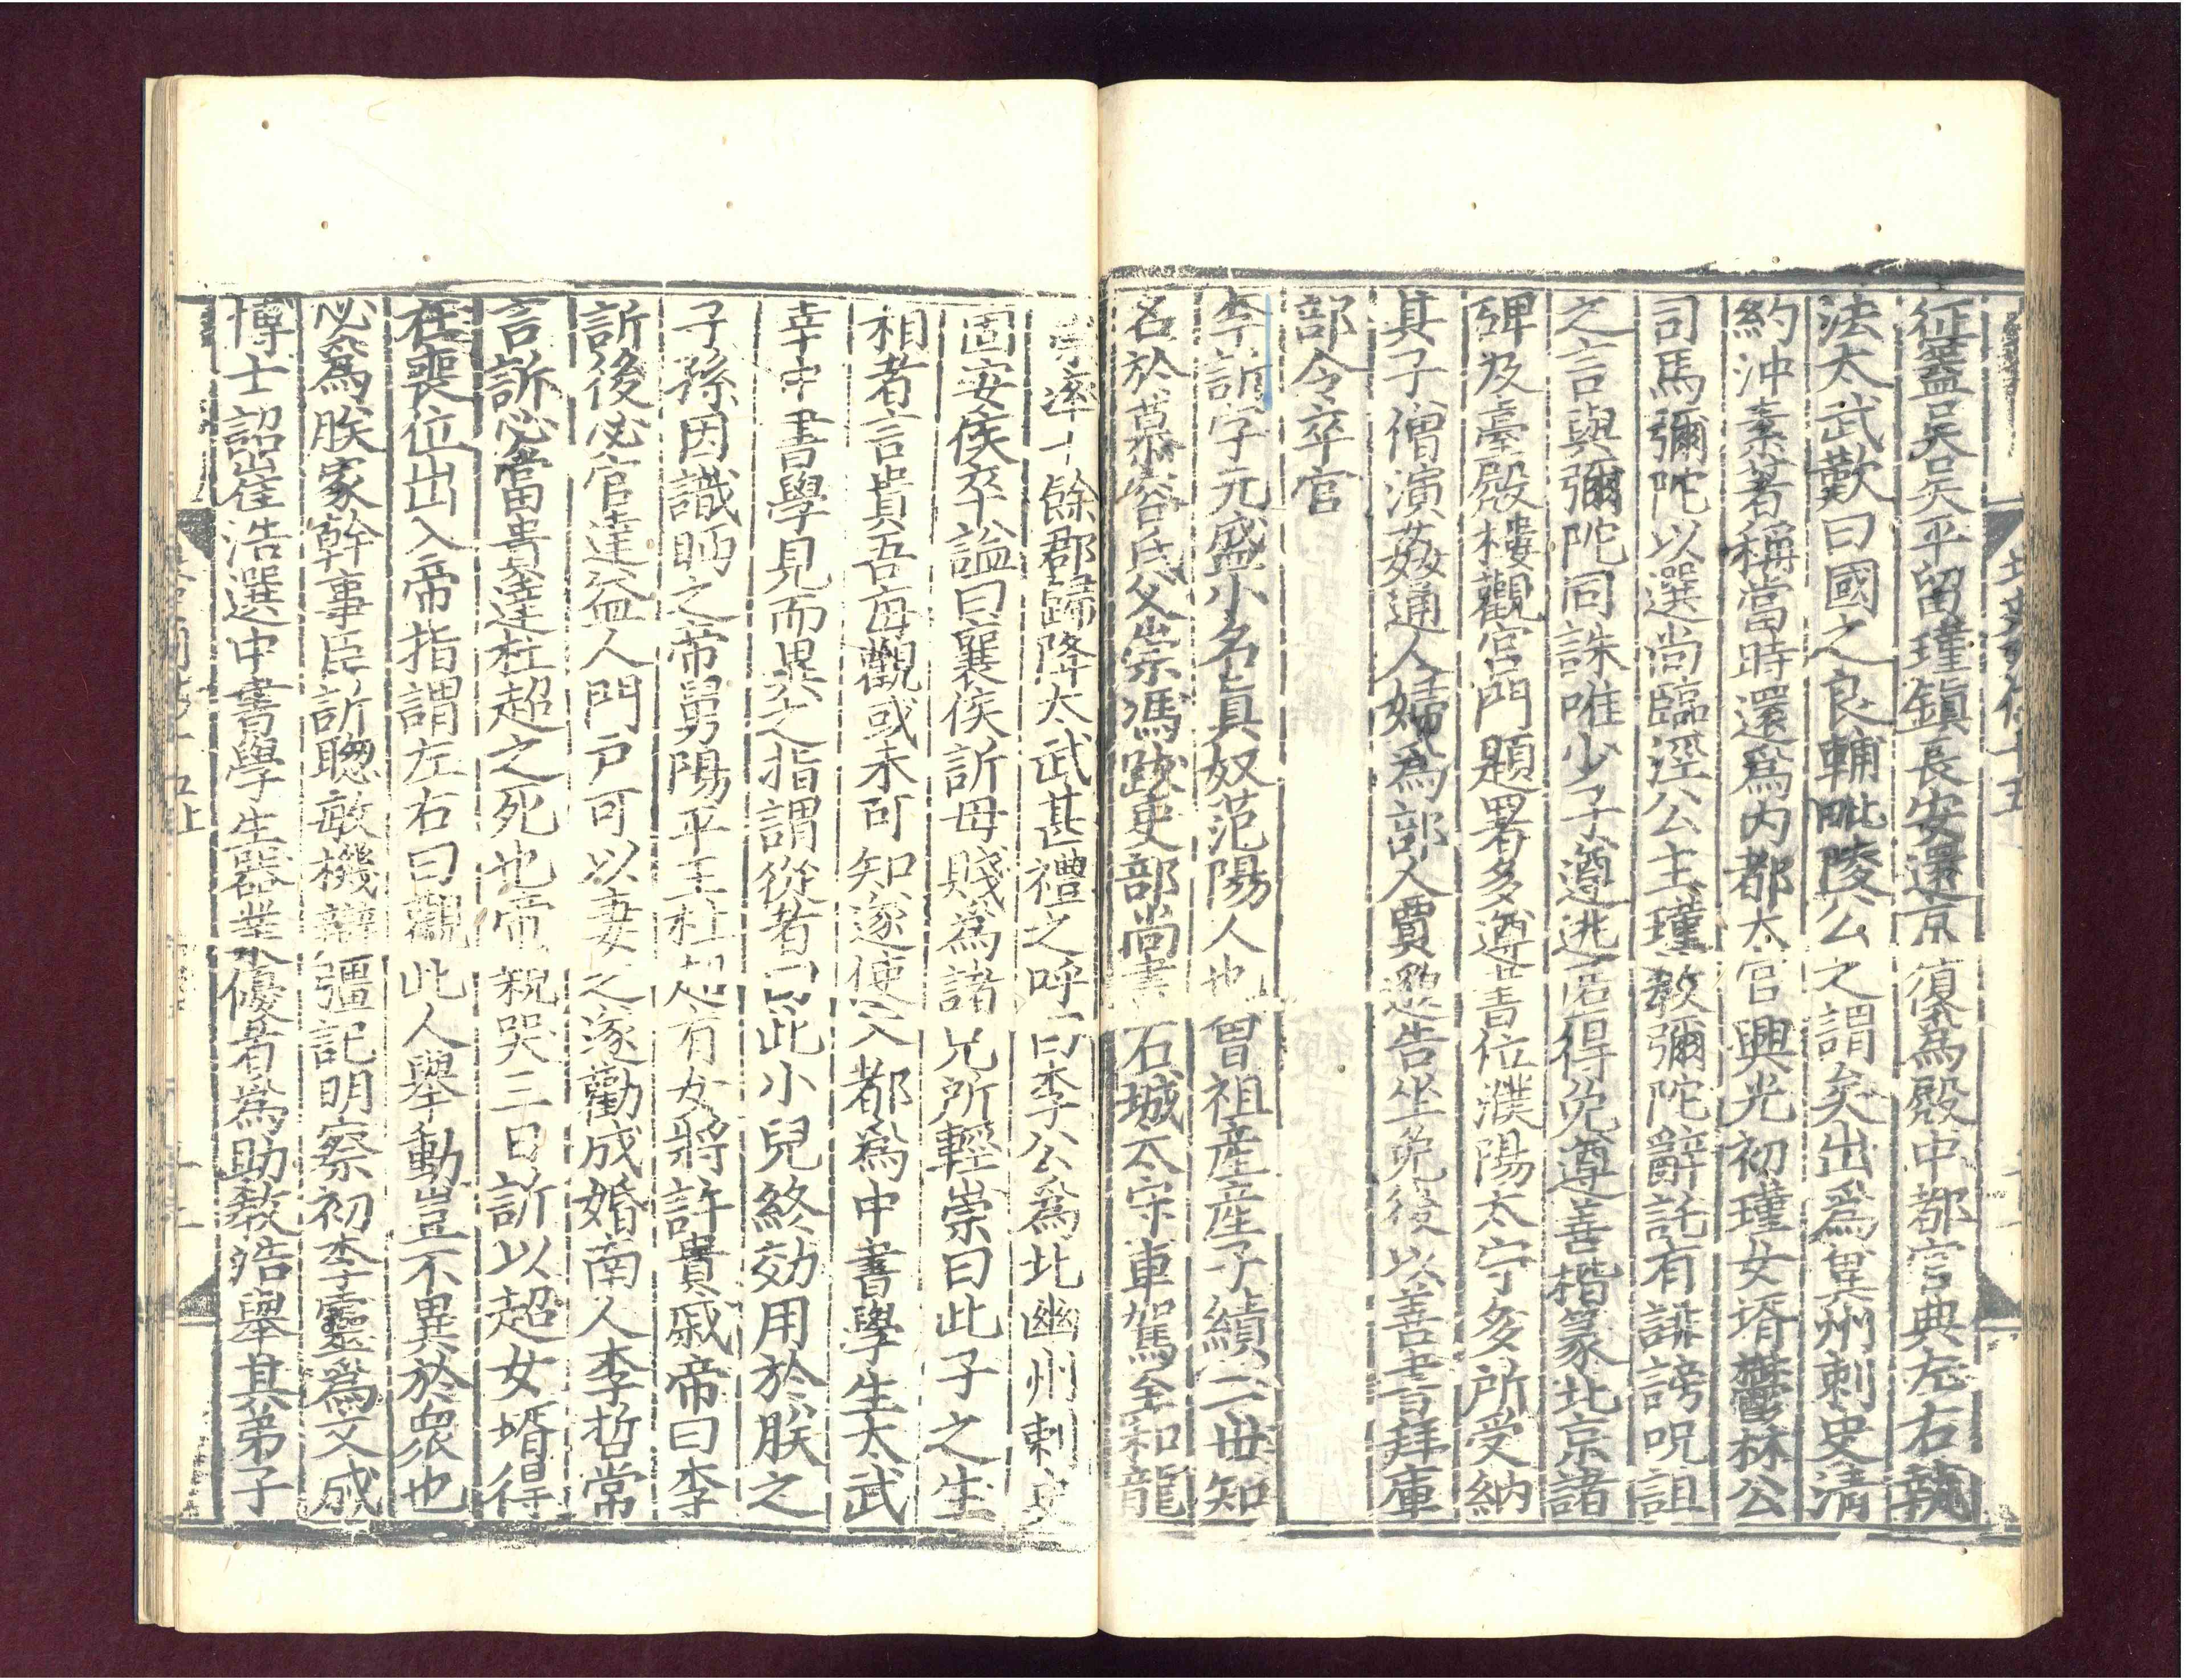 北史列傳十五
征蓋吳吳平留瑾鎮長安還京復爲殿中都官典左右執
法太武歎曰國之良輔毗陵公之謂矣出爲兾州刺史清
約沖素著稱當時還爲内都大官興光初瑾女壻鬱林公
司馬彌陀以選尚臨涇公主瑾敎彌陀辭託有誹謗呪詛
之言與彌陀同誅唯少子遵逃匿得免遵善楷篆北京諸
碑及臺殿樓觀宫門題署多遵書位濮陽太守多所受納
其子僧演姦通人婦爲部人賈邈告坐免後以善書拜庫
部令卒官
李訢字元盛小名真奴范陽人也曾祖産産子績二世知
名於慕容氏父崇馮跋吏部尚書石城太守車駕至和龍
崇率十餘郡歸降太武甚禮之呼曰李公爲北幽州刺史
固安侯卒謚曰襄侯訢母賤爲諸兄所輕崇曰此子之生
相者言貴吾每觀或未可知遂使入都爲中書學生太武
幸中書學見而異之指謂從者曰此小兒終効用於朕之
子孫因識眄之帝舅陽平王杜超有女將許貴戚帝曰李
訢後必官達益人門戸可以妻之遂勸成婚南人李哲常
言訢必當貴達杜超之死也帝親哭三日訢以超女壻得
在喪位出入帝指謂左右曰觀此人舉動豈不異於衆也
必爲朕家幹事臣訢聦敏機辯彊記明察初李靈爲文成
博士詔崔浩選中書學生器業優者爲助敎浩舉其弟子